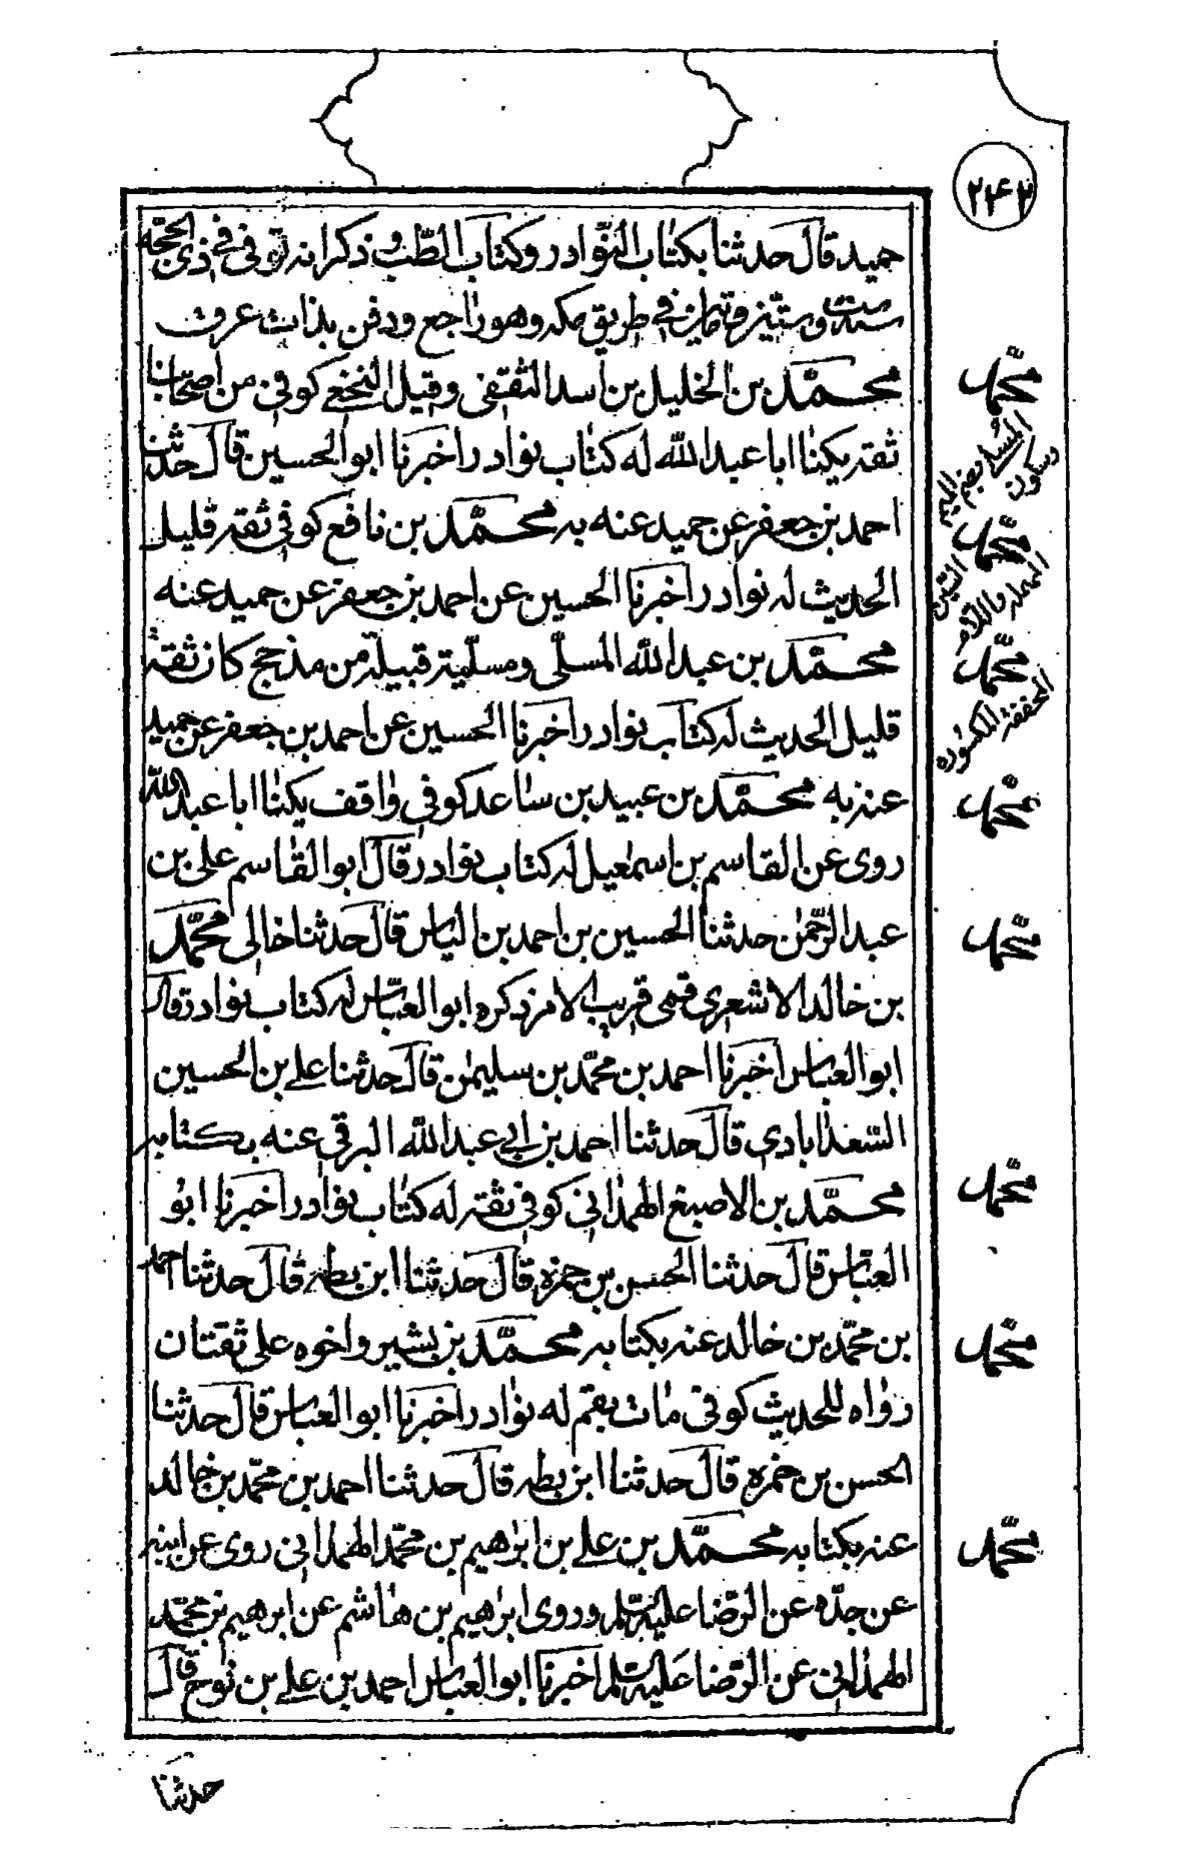 ٢٤٢
حميد قال حدثنا بكتاب النوّادر وكتاب الطّب وذكر انه توّفى فى ذى الحجّة
سنة ست وستّين ومأتين فى طريق مكه وهو راجع ودفن بذات عرق
محمّد بن الخليل بن اسد الثقفى وقيل النخعى كوفى من اصحابنا
ثقة يكنا ابا عبد الله له كتاب نوادر اخبرنا ابو الحسين قال حدثنا
احمد بن جعفر عن حميد عنه به محمّد بن نافع كوفى ثقة قليل
الحديث له نوادر اخبرنا الحسين عن احمد بن جعفر عن حميد عنه
محمّد بن عبد الله المسلّى ومسلّية قبيلة من مذحج كان ثقة
قليل الحديث له كتاب نوادر اخبرنا الحسين عن احمد بن جعفر عن حميد
عنه به محمّد بن عبيد بن ساعد كوفى واقف يكنا ابا عبد الله
روى عن القاسم بن اسمعيل له كتاب نوادر قال ابو القاسم على بن
عبد الرّحمن حدثنا الحسين بن احمد بن الياس قال حدثنا خالى محمّد
بن خالد الاشعرى قمى قريب الامر ذكره ابو العبّاس له كتاب نوادر قال
ابو العباس اخبرنا احمد بن محمّد بن سليمن قال حدثنا على بن الحسين
السّعدابادى قال حدثنا احمد بن ابى عبد الله البرقى عنه بكتابه
محمّد بن الاصبغ الهمدانى كوفى ثقة له كتاب نوادر اخبرنا ابو
العبّاس قال حدثنا الحسن بن حمزه قال حدثنا ابن بطه قال حدثنا احمد
بن محمّد بن خالد عنه بكتابه محمّد بن بشير واخوه على ثقتان
رواه للحديث كوفى مات بقم له نوادر اخبرنا ابو العباس قال حدثنا
الحسن بن حمزه قال حدثنا ابن بطه قال حدثنا احمد بن محمّد بن خالد
عنه بكتابه محمّد بن على بن ابرهيم بن محمّد الهمدانى روى عن ابيه
عن جدّه عن الرّضا عليه السّلم وروى ابرهيم بن هاشم عن ابرهيم بن محمّد
الهمدانى عن الرّضا عليه السّلم اخبرنا ابو العباس احمد بن على بن نوح قال
محمّد
المسلى بضم الميم
وسكون
محمّد
السّين
المهمله واللام
محمّد
المخففة المكسوره
محمّد
محمّد
محمّد
محمّد
محمّد
حدثنا